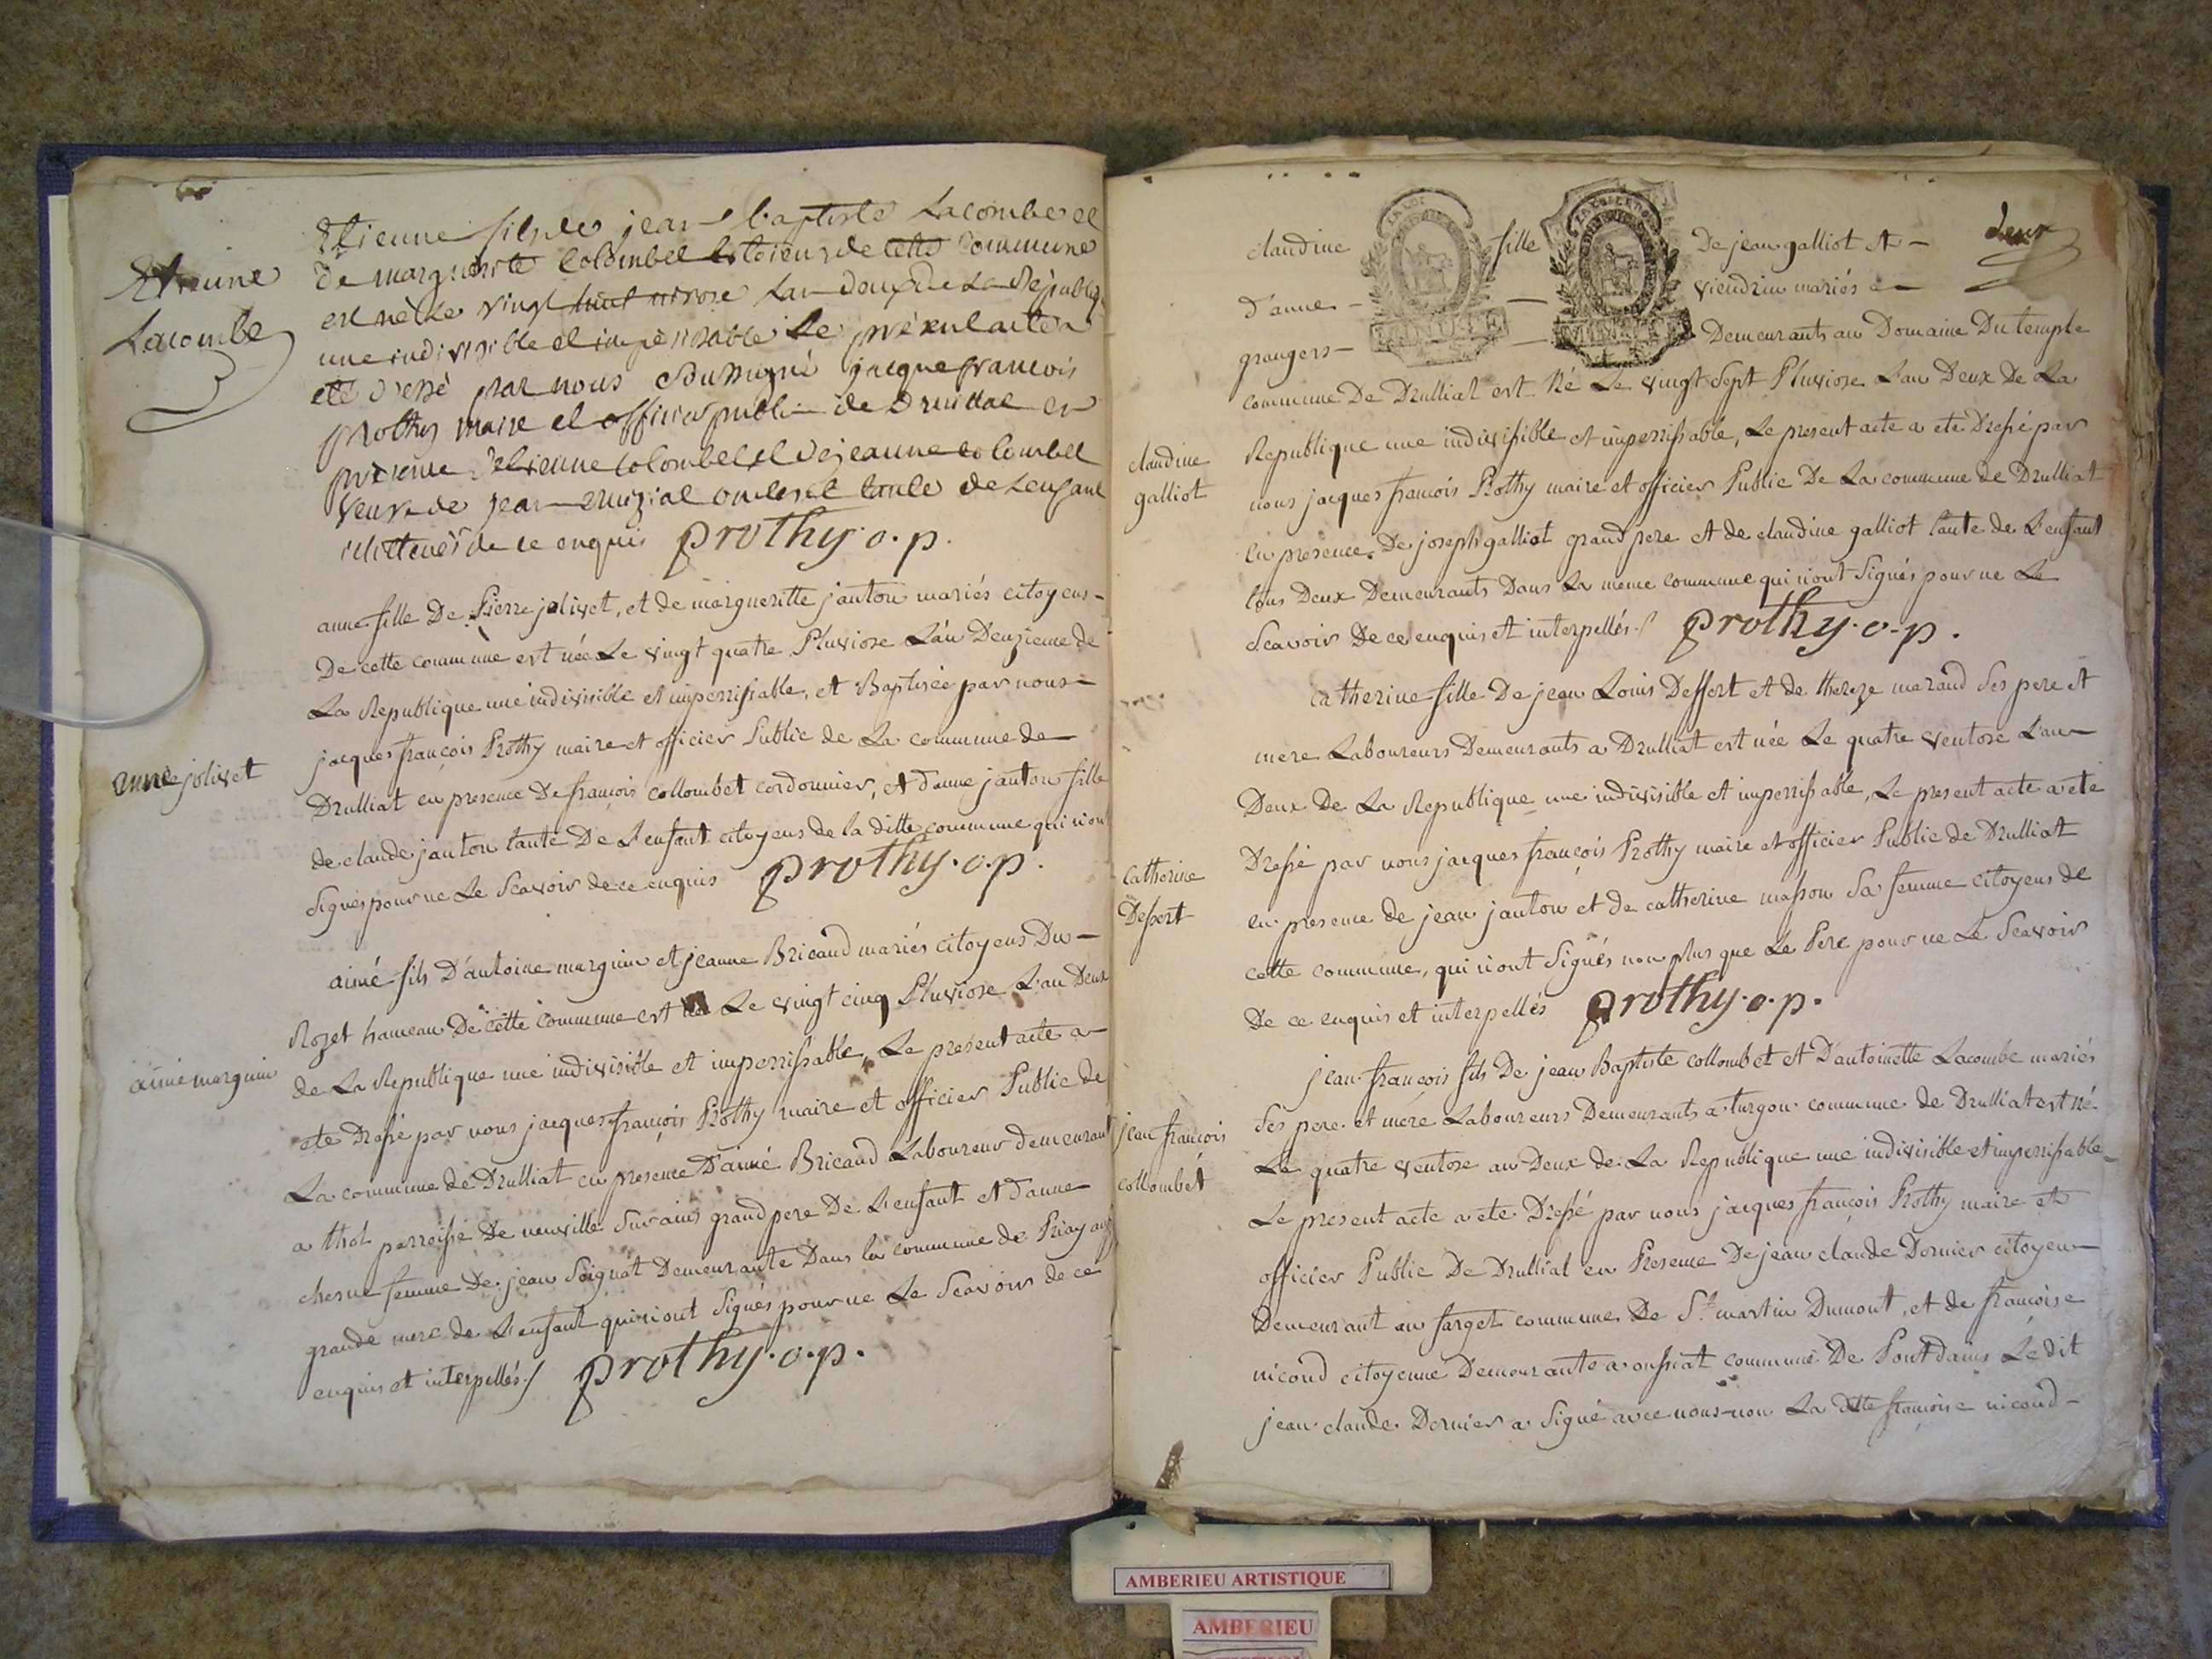 Etienne
Lacombe
Etienne fils de jean baptiste Lacombe et
de margueritte Colombet Citoiens de cette Commune
est nè Le vingt huit nivose Lan deux de La Républiq
une indivisible et impèrisable Le prèsent acte a
etè dressè par nous soussignè jacque francois
prothy maire et officier public de Druillat en
prèsence detienne Colombet et de jeanne Colombet
veuve de jean oncle et tante de Lenfant
de ce enquis prothy.o.p.
anne jolivet
anne fille De Pierre jolivet, et de margueritte janton mariés citoyens
De cette commune est née Le vingt quatre Pluviose L'an Deuzieme de
La Republique une indivisible et imperrissable, et Baptisée par nous
jacques françois Prothy maire et officier Public de La commune de
Drulliat en presence De françois collombet cordonnier, et d'anne janton fille
de claude janton tante De L'enfant citoyens de la ditte commune qui n'ont
Signés pour ne Le Scavoir de ce enquis prothy.o.p.
aimé marguin
aimé fils D'antoine marguin et jeanne Bricaud mariés citoyens Du
Rozet hameau De cette commune est né Le vingt cinq Pluviose L'an Deux
de La Republique une indivisible et imperrissable, Le present acte a
ete Dressé par nous jacques françois Prothy maire et officier Public de
La commune de Drulliat en presence D'aimé Bricaud Laboureur demeurant
a thol parroisse De neuville Sur ains grand pere De L'enfant et d'anne
chesne femme De jean Soignat Demeurante Dans la commune de Priay aussi
grande mere de L'enfant qui n'ont Signés pour ne Le Scavoir de ce
enquis et interpellés / prothy.o.p.
deux
claudine fille De jean galliot et
d'anne viendrin mariés
grangers Demeurants au Domaine Du temple
claudine
galliot
commune De Drulliat est Né Le vingt Sept Pluviose L'an Deux De La
Republique une indivisible et imperrissable, Le present acte a ete Dressé par
nous jacques francois Prothy maire et officier Public De La commune de Drulliat
En presence De joseph galliot grand pere et de claudine galliot tante de L'enfant
tous Deux Demeurants Dans La meme commune qui n'ont Signés pour ne Le
Scavoir De ce enquis et interpellés / prothy.o.p.
catherine
Dessert
catherine fille De jean Louis Dessert et de thereze marand Ses pere et
mere Laboureurs Demeurants a Drulliat est née Le quatre ventose L'an
Deux De La Republique une indivisible et imperrissable, Le present acte a ete
Dressé par nous jacques françois Prothy maire et officier Public de Drulliat
en presence de jean janton et de catherine masson Sa femme citoyens de
cette commune, qui n'ont Signés non plus que Le Pere pour ne Le Scavoir
De ce enquis et interpellés prothy.o.p.
jean françois
collombet
jean françois fils De jean Baptiste collombet et D'antoinette Lacombe mariés
Ses pere et mere Laboureurs Demeurants a turgon commune de Drulliat est né
Le quatre ventose an Deux de La Republique une indivisible et imperrissable
Le present acte a ete Dressé par nous jacques françois Prothy maire et
officier Public De Drulliat en Presence De jean claude Dornier citoyen
Demeurant au farget commune De St. martin Dumont, et de françoise
nicoud citoyenne Demeurante a oussiat commune De Pontdains Le dit
jean claude Dornier a Signé avec nous non La ditte françoise nicoud
AMBERIEU ARTISTIQUE
AMBERIEU